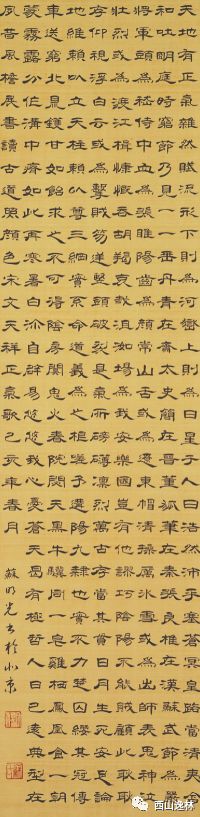 天地有正氣雜然賦流形下則為河嶽上則為日星于人曰浩然沛乎塞蒼冥皇路當清夷含
和吐明庭時窮節乃見一一垂丹青在齊太史簡在晉董狐筆在秦張良椎在漢蘇武節為嚴
將軍頭為嵇侍中血為張睢陽齒為顏常山舌或為遼東帽清操厲冰雪或為出師表鬼神泣
壯烈或為渡江楫慷慨吞胡羯哀哉沮洳場為我安樂國豈有他謬巧陰陽不能賊顧此耿耿
仰視浮或為擊賊笏逆豎頭破裂是氣所磅礴凜烈萬古存當其貫日月生死安足論
地維賴以立天柱賴以尊三綱實系命道義為之根嗟予遘陽九隸也實不力楚囚纓其冠傳
車送窮北鼎鑊甘如飴求之不可得陰房闃鬼火春院閟天黑牛驥同一皂雞棲鳳凰食一朝
蒙霧露分作溝中瘠如此再寒暑百沴自辟易悠悠我心憂蒼天曷有極哲人日已遠典型在
夙昔風檐展書讀古道照顏色宋文天祥正氣歌己亥年春月
蘇明光書於北京
西山逸林